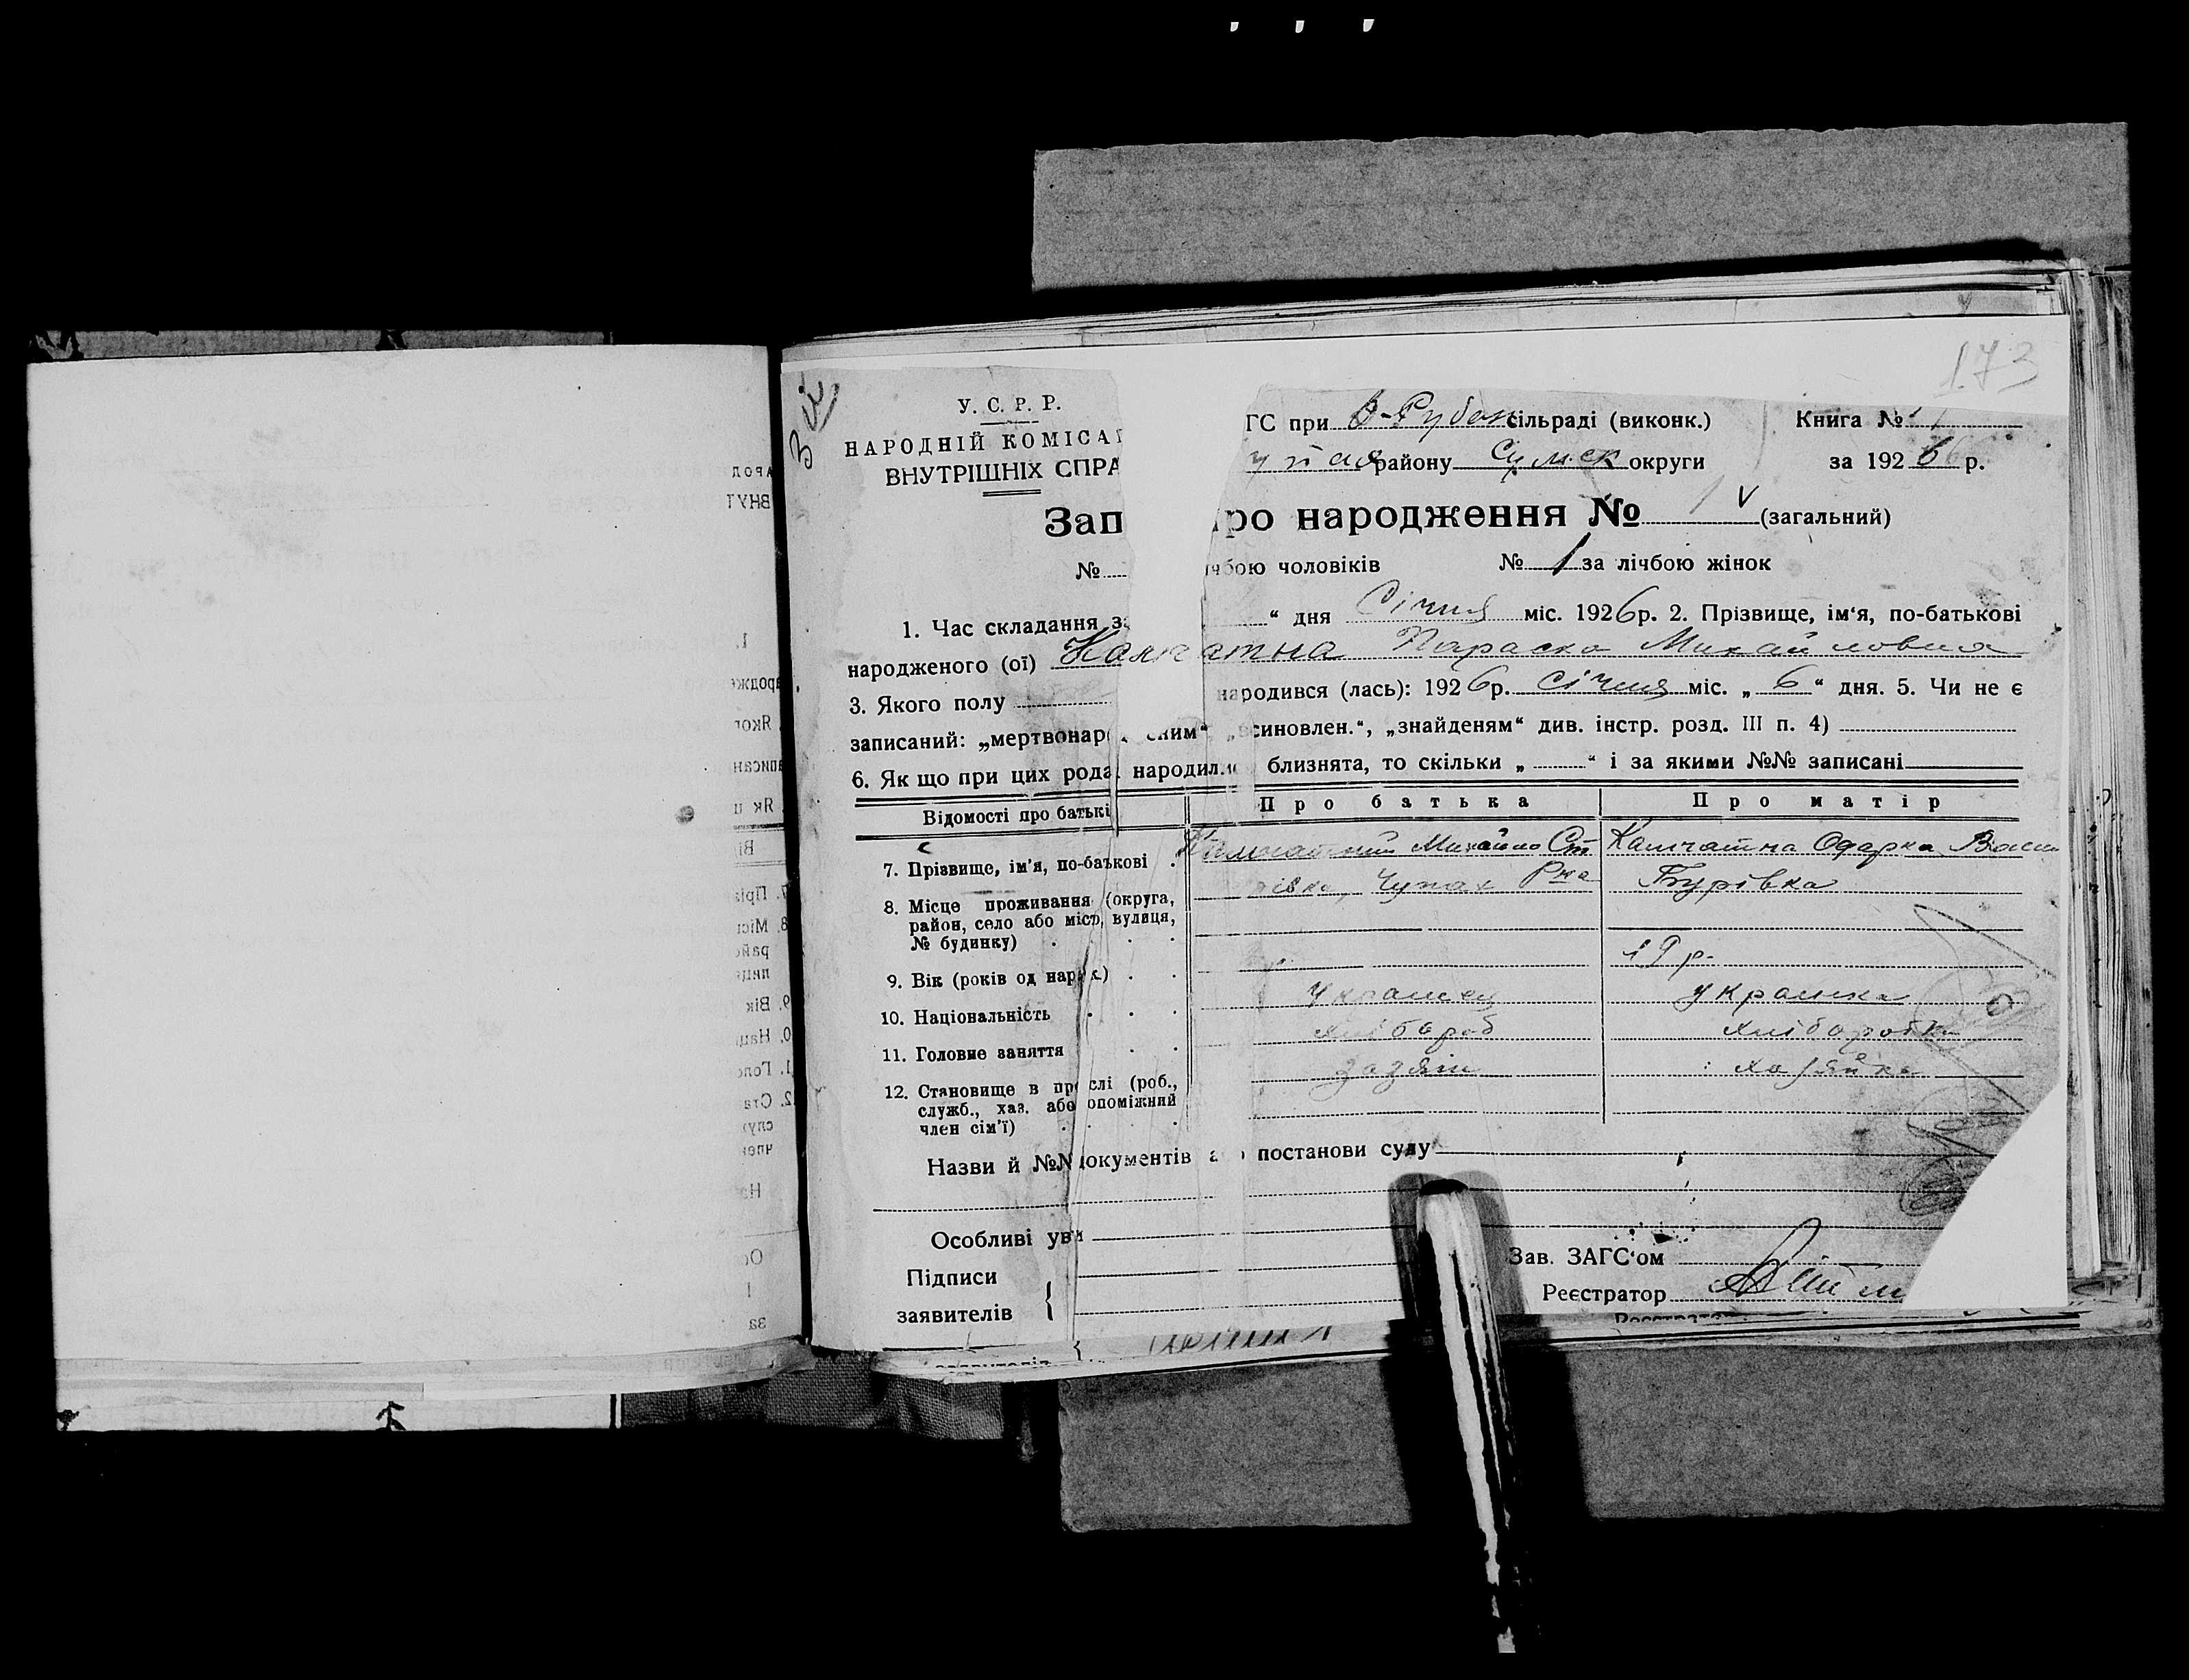 173
У. С. Р. Р.
НАРОДНІЙ КОМІСАР
ВНУТРІШНІХ СПРА
ГС при В-Рубан сільраді (виконк.) Книга № 1
району Сумск округи за 1926 р.
Зап про народження № 1 (загальний)
№ лічбою чоловіків № 1 за лічбою жінок
1. Час складання за “ дня Січня міс. 1926 р. 2. Прізвище, ім‘я, по-батькові
народженого (ої) Камчатна Параска Михайловна
3. Якого полу народився (лась): 1926 р. Січня міс. „ 6 “ дня. 5. Чи не є
записаний: „мертвонар еним“, „всиновлен.“, „знайденям“ див. інстр. розд. III п. 4)
6. Як що при цих рода народил близнята, то скільки „ “ і за якими №№ записані
Відомості про батькі Про батька Про матір
7. Прізвище, ім‘я, по-батькові Камчатний Михайло Ст Камчатна Одарка Васи
8. Місце проживання (округа, район, село або місто, вулиця, № будинку) івка, Чупах Рна Бурівка
9. Вік (років од нар ж.) 19 р.
10. Національність Украинец Украинка
11. Головне заняття хлібороб хліборобка
12. Становище в пр слі (роб., служб., хаз. або опоміжний член сім‘ї) хазяйка
Назви й №№ документів а о постанови суду
Особливі ув и
Підписи
заявителів
Зав. ЗАГС‘ом
Реєстратор